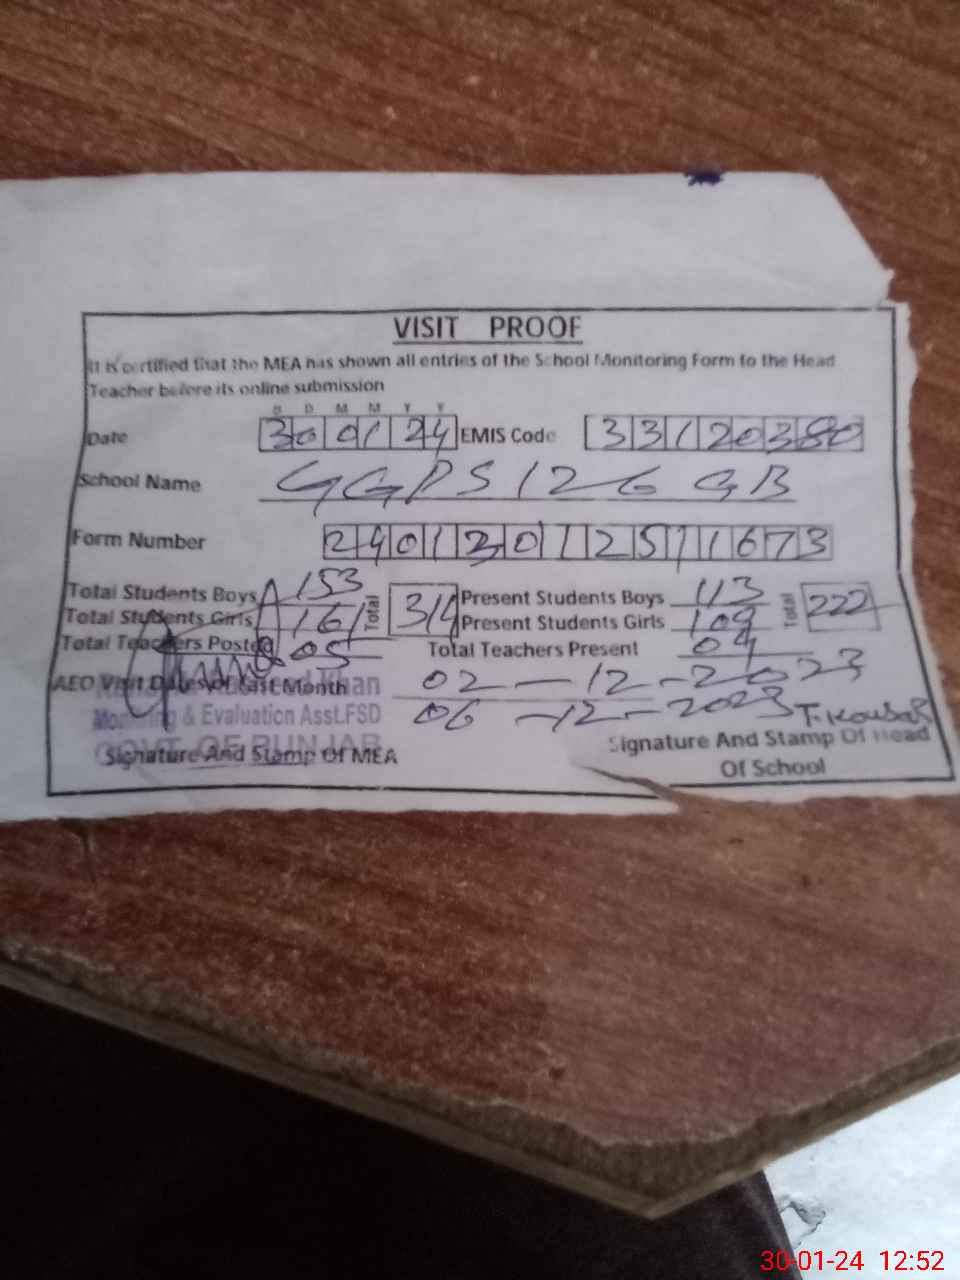 VISIT PROOF
It is certified that the MEA has shown all entries of the School Monitoring Form to the Head
Teacher before its online submission
D D M M Y Y
Date 30 01 24 EMIS Code 33120380
School Name GGPS 126 GB
Form Number
Total Students Boys 153 Total 314 Present Students Boys 113 Total 222
Total Students Girls 161 Present Students Girls 109
Total Teachers Posted 05 Total Teachers Present 04
AEO Visit Dates of Last Month 02-12-2023
Khan
06-12-2023 T.Kousar
Monitoring & Evaluation Asst.FSD
GOVT OF PUNJAB
Signature And Stamp Of MEA Signature And Stamp Of Head
Of School
30-01-24 12:52